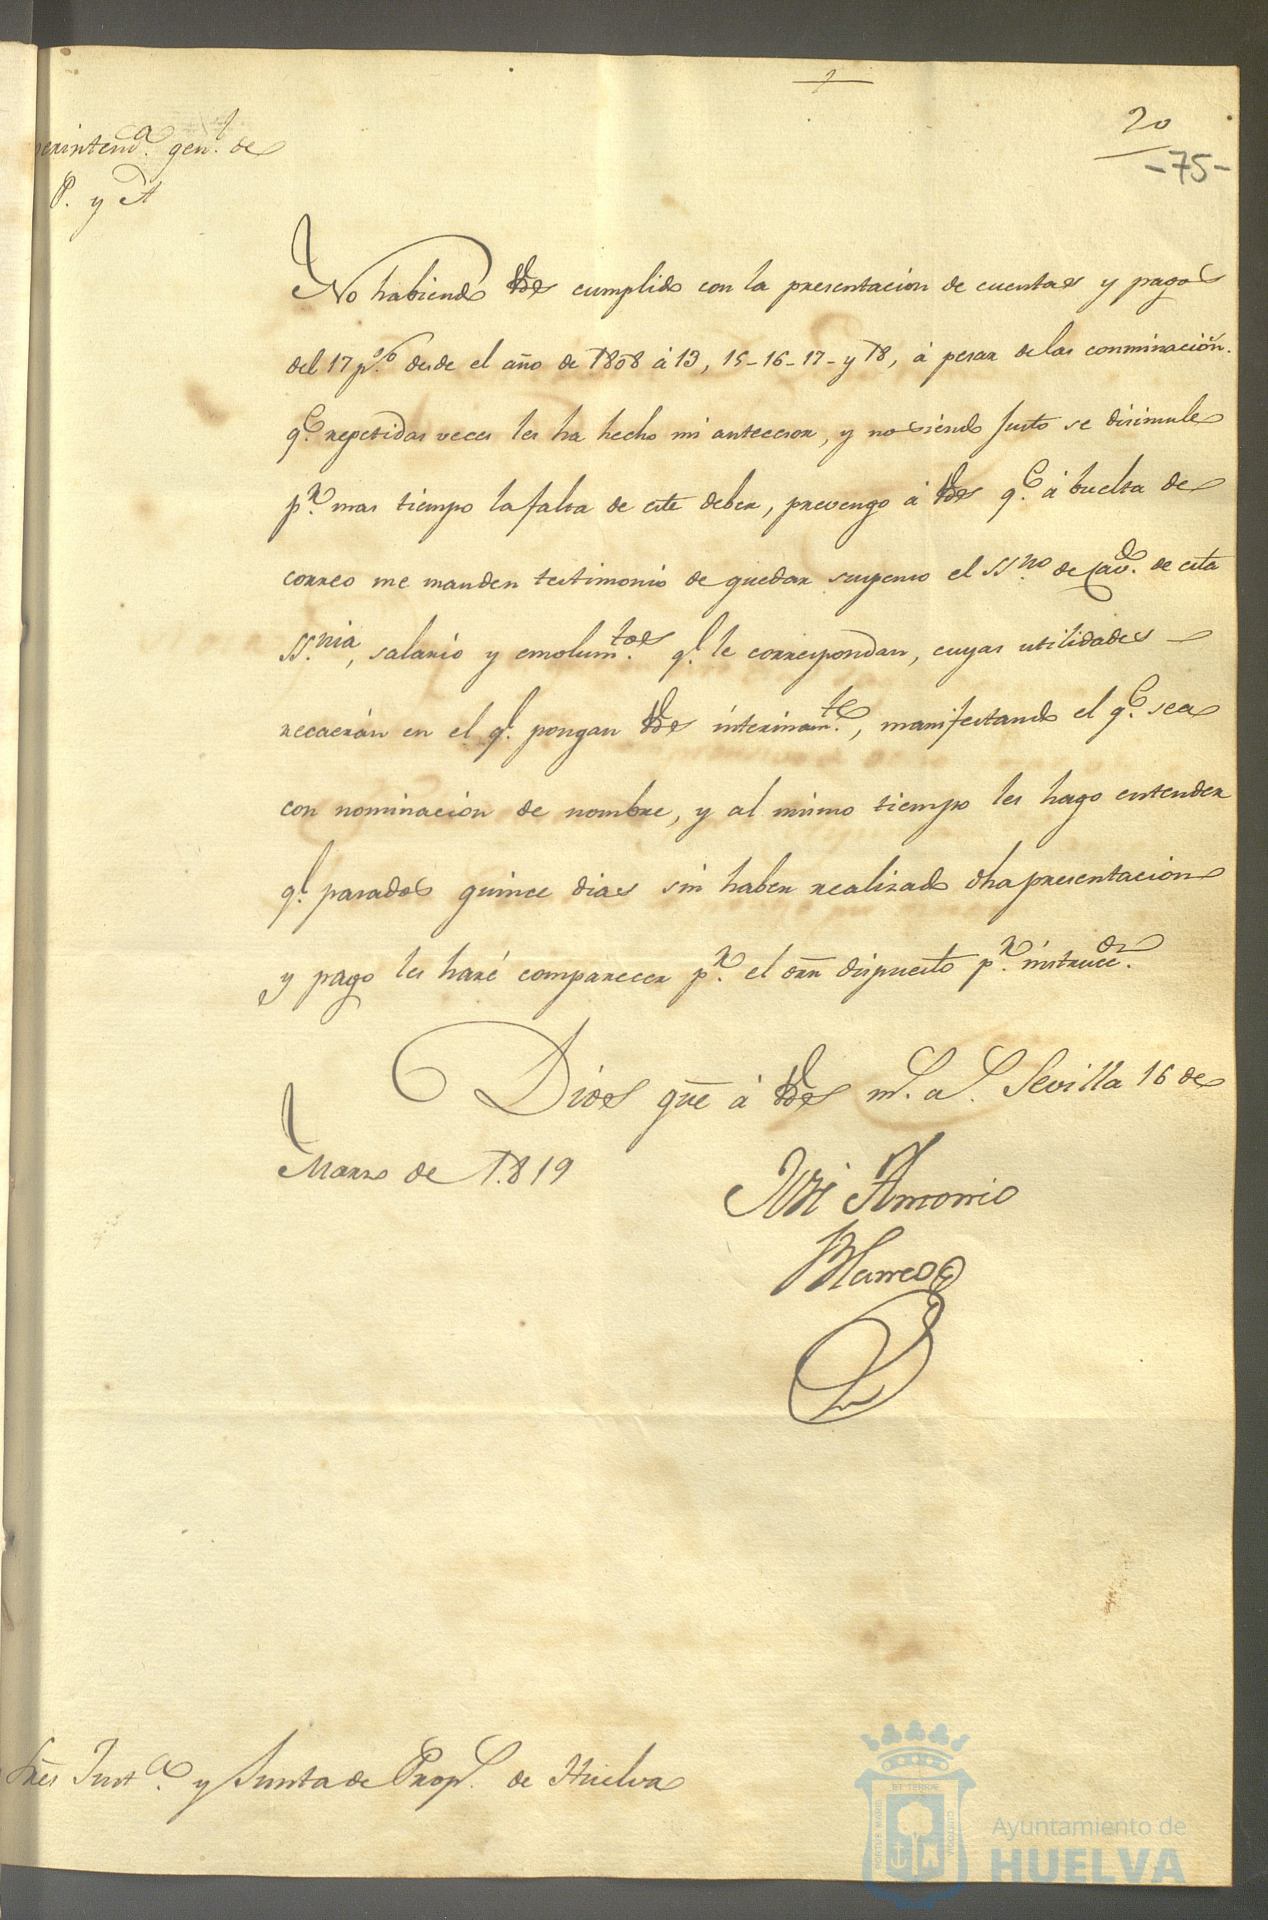 20
-75-
erintend.ª gen.l de
P. y A
No habiendo Vdes cumplido con la presentacion de cuentas y pagos
del 17 p.% desde el año de 1808 á 13, 15-16-17- y 18, á pesar de las conminación.
q.e repetidas veces les ha hecho mi antecesor, y no siendo justo se disimule
p.r mas tiempo la falta de este deber, prevengo á Vdes q.e á buelta de
correo me manden testimonio de quedar suspenso el SS.no de Cav.do de esta
SS.nia, salario y emolum.tos q.l le correspondan, cuyas utilidades
recaerán en el q.l pongan Vdes interinam.te, manifestando el q.e sea
con nominación de nombre, y al mismo tiempo les hago entender
q.l pasados quince dias sin haber realizado dha presentacion
y pago les haré comparecer p.r el orn dispuesto p.r instrucc.on
Dios gue á Vdes m.s a.s Sevilla 16 de
Marzo de 1.819
José Antonio
Blanco
Sres Just.ª y Junta de Prop.s de Huelva
PORTUS MARIS
ET TERRAE
CUSTODIA
Ayuntamiento de
HUELVA